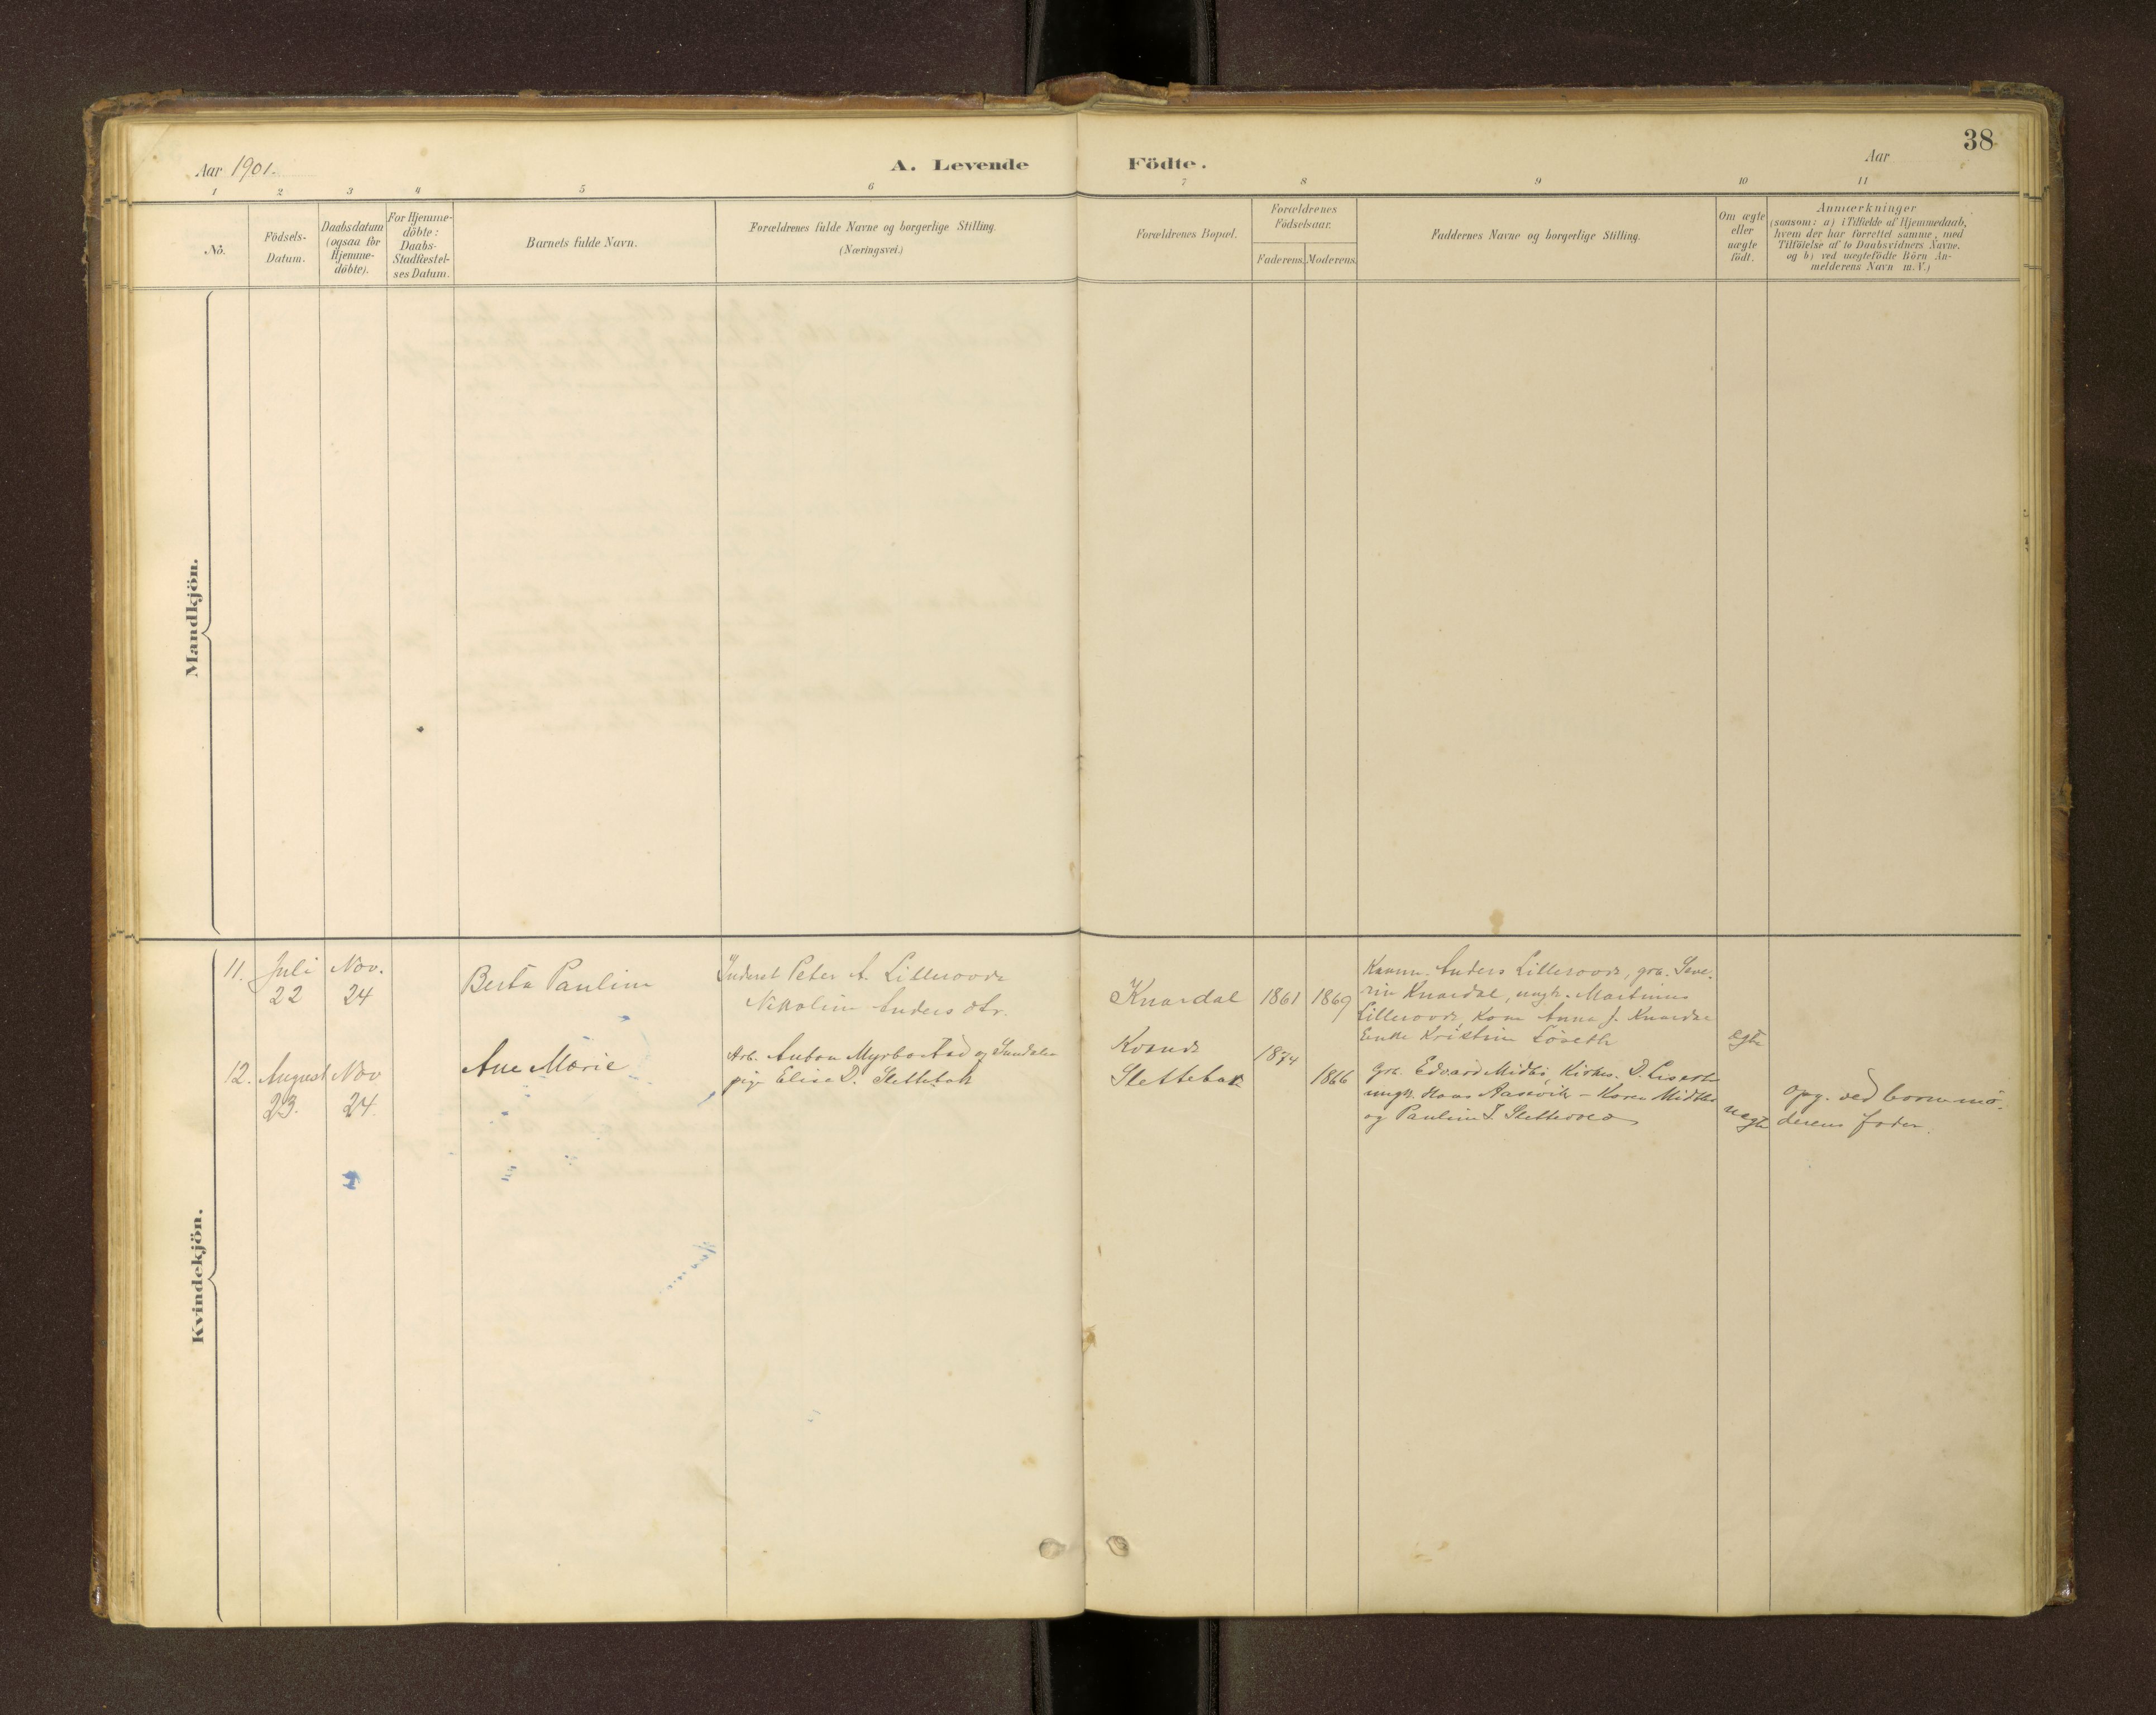 38
Aar 1901.
A. Levende Födte.
Aar
1 2 3 4 5 6 7 8 9 10 11
No.
Födsels-
Datum.
Daabsdatum
(ogsaa for
Hjemme-
döbte).
For Hjemme-
döbte:
Daabs-
Stadfæstel-
ses Datum.
Barnets fulde Navn.
Forældrenes fulde Navne og borgerlige Stilling.
(Næringsvei.)
Forældrenes Bopæl.
Forældrenes
Födselsaar.
Faderens. Moderens.
Faddernes Navne og borgerlige Stilling.
Om ægte
eller
uægte
födt.
Anmærkninger
(saasom: a) i Tilfælde af Hjemmedaab,
hvem der har forrettet samme, med
Tilföielse af to Daabsvidners Navne.
og b) ved uægtefödte Börn An-
melderens Navn m.V.)
Mandkjön.
Kvindekjön.
11.
Juli
22
Nov.
24
Berta Pauline
Inderst Peter A. Lillerovde
Nikoline Andersdtr.
Knardal
1861
1869
Anders Lillerovde, grb. Seve-
rin Knardal, ungk. Martinus
Lillerovde, Kone Anna J. Knardal
Enke Kristine Löseth
ægte
12.
August
23.
Nov
24.
Ane Marie
Arb. Anton Myrbostad og
pige Elise D. Slettebak
Kvande
Slettebak
1874
1866
grb. Edvard Midbö, Kirkes. D. Liseth
ungk. Hans Aasevik - Karen Midbö
og Pauline I.
uægte
Opg. ved barnemo-
derens fader.